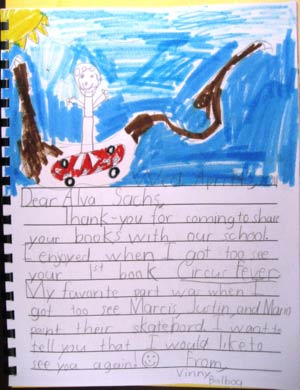 Dear Alva Sachs,
Thank-you for coming to share
your books with our school.
I enjoyed when I got too see
your 1st book Circus Fever
My favorite part was when I
got too see Marcis, Justin, and Mario
paint their skatebord I want to
tell you that I would like to
see you again! From,
Vinny